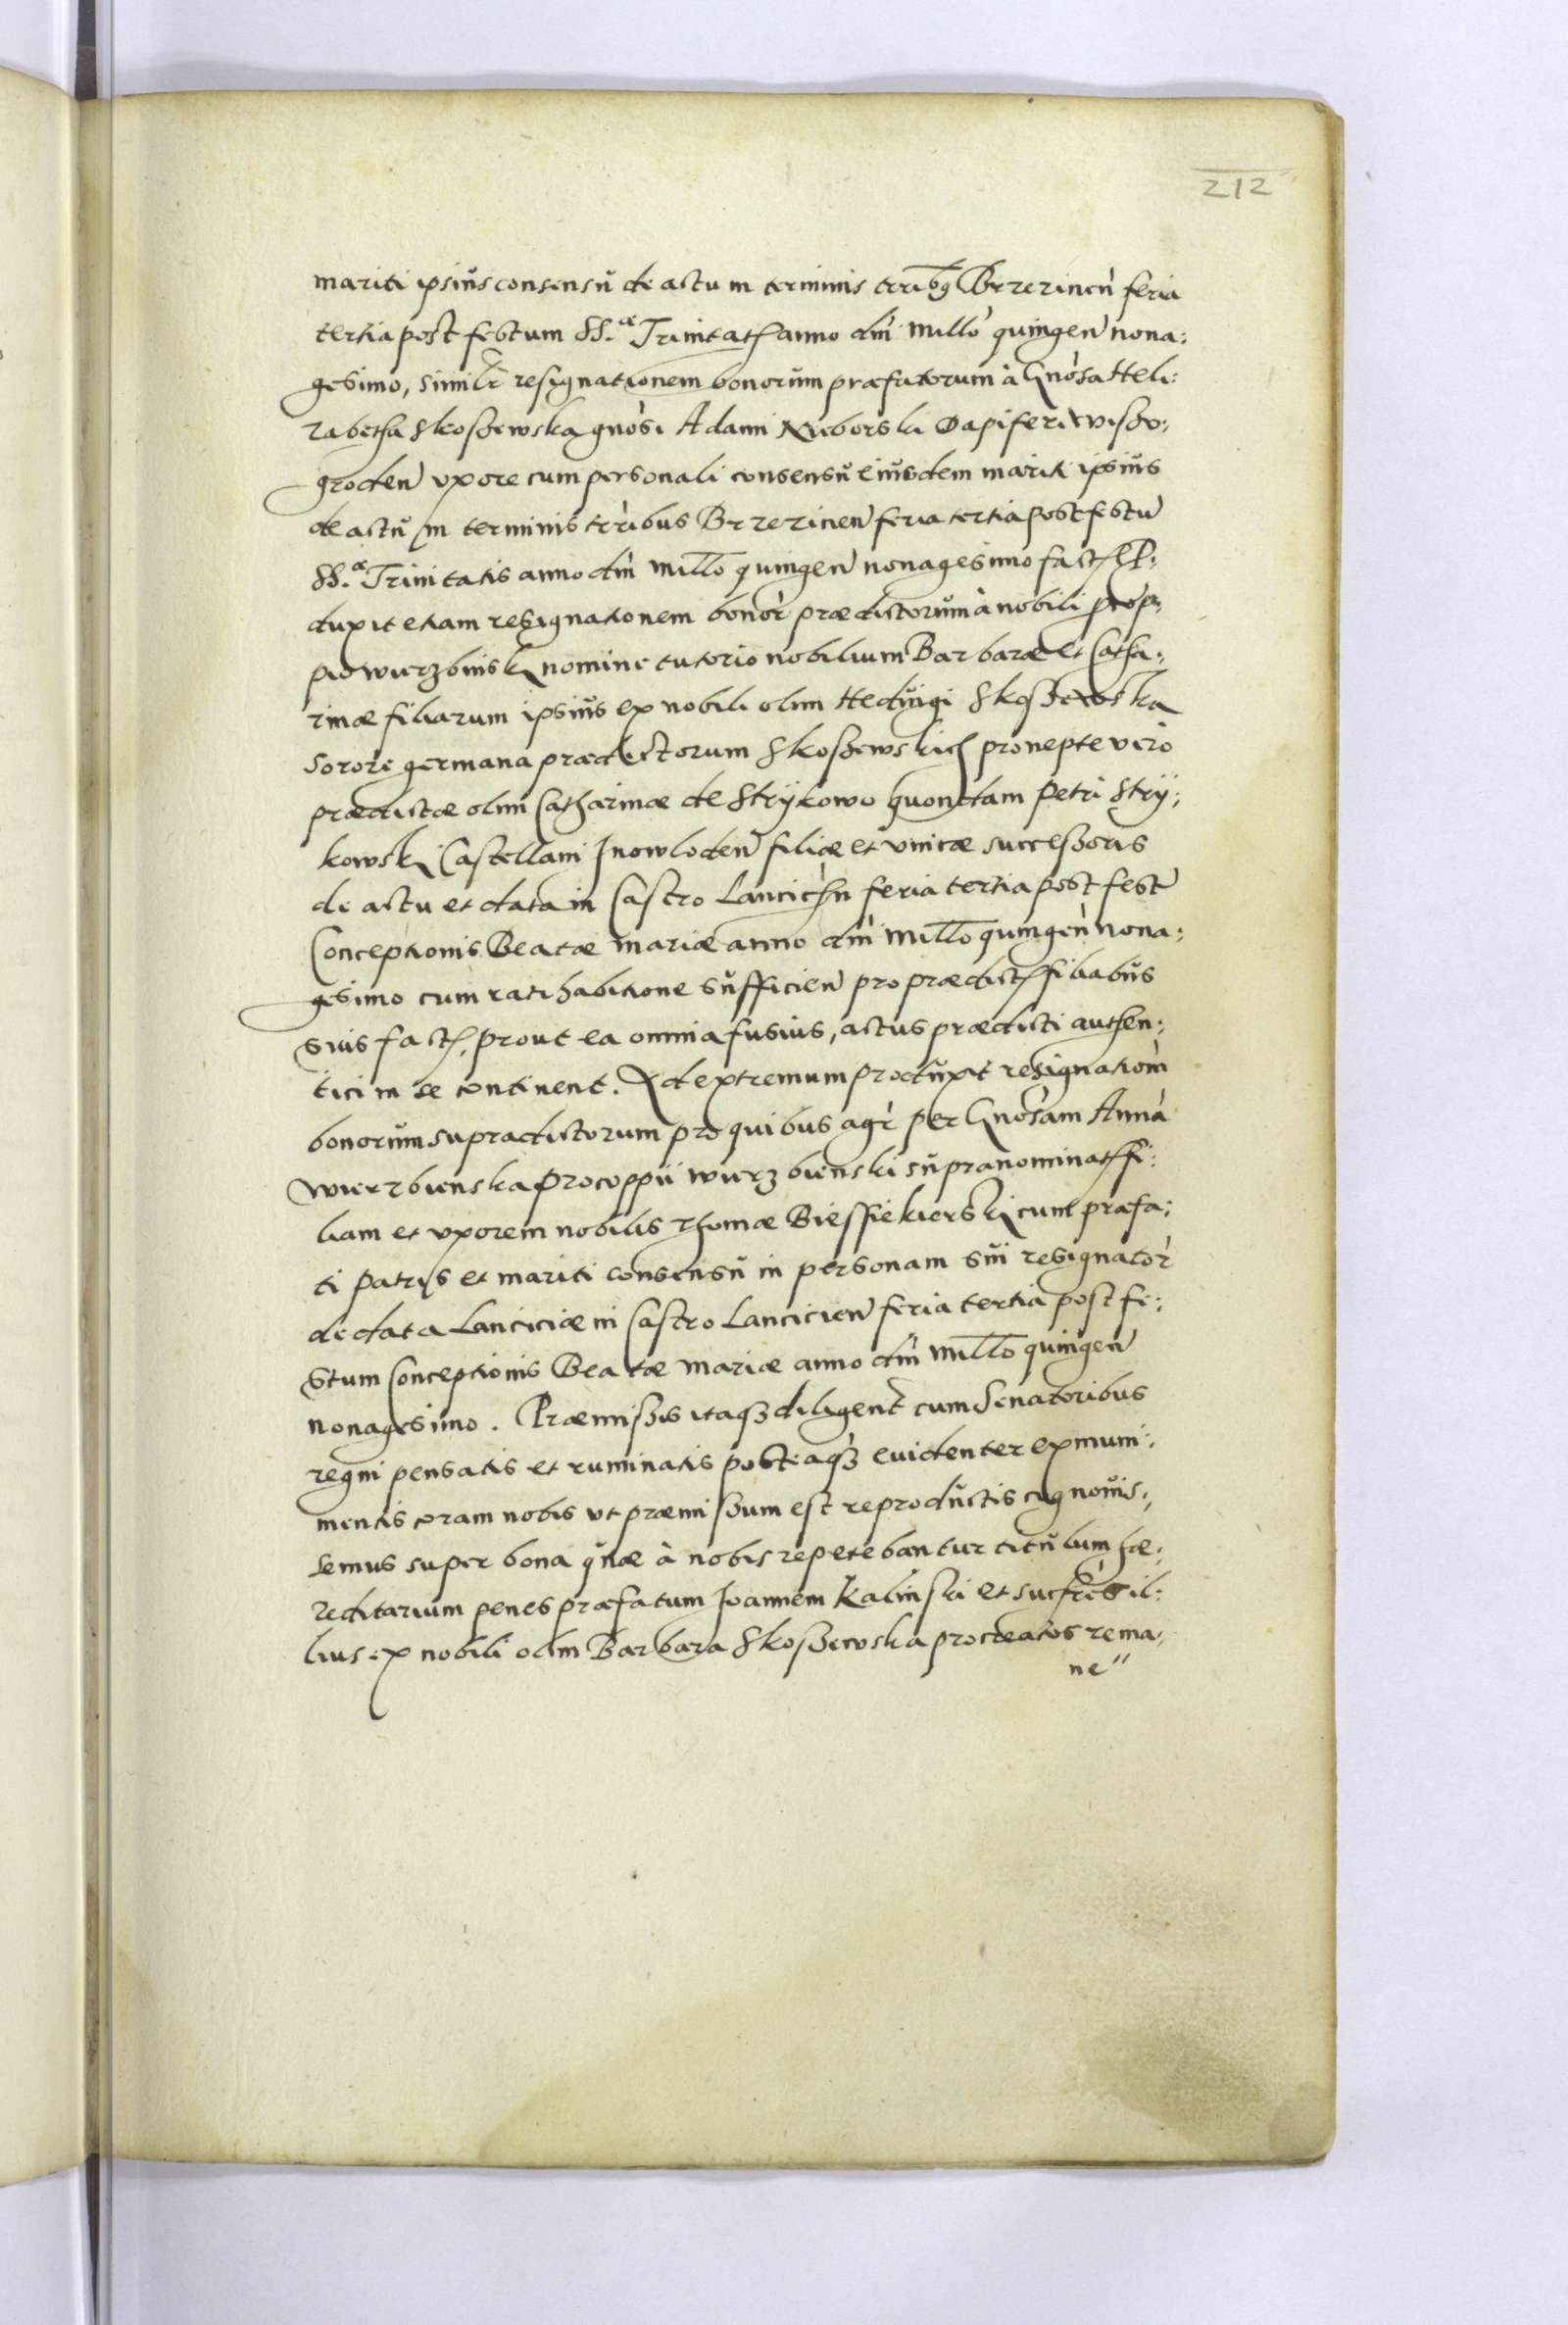 212
mariti ipsius consensu de actu in terminis trribq Brzezinen̄ feria
tertia post festum SS.æ Trinitatis anno dn̄i millo quingen̄ nona:
gesimo, similr̄ resignationem bonorum præfatorum à Gnosa Heli:
zabetha Skoszewska gnosi Adami Nieborski Dapiferi Wiszo:
groden̄ uxore cum personali consensu eiusdem mariti ipsius
de actu in terminis trribus Brzezinen̄ feria tertia post festū
SS.æ Trinitatis anno dn̄i millo quingen̄ nonagesimo fact. P:
duxit etiam resignationem bonor̄ prædictorum à nobili
nomine tutorio nobilium Barbaræ et Catha:
rinæ filiarum ipsius ex nobili olim Hedvigi Skoszewska
sorore germana prædictorum Skoszewskich pronepte vero
prædictæ olim Catharinæ de Strÿkowo quondam Petri Strÿ:
kowski Castellani Jnowloden̄ filiæ et unicæ successoris
de actu et data in Castro Lancicien̄ feria tertia post festū
Conceptionis Beatæ Mariæ anno dn̄i millo quingen̄ nona:
gesimo cum ratihabitione sufficien̄ pro prædict. filiabus
suis fact. prout ea omnia fusius, actus prædicti authen:
tici in se continent. Ad extremum produxit resignationē
bonorum supradictorum pro quibus agr̄ per Gnosam Annā
Wierzbienska Procoppii Wierzbienski supranominat. fi:
liam et uxorem nobilis Thomæ Biessiekierski cum præfa:
ti Patris et mariti consensu in personam sui resignator̄
de data Lanciciæ in Castro Lancicien̄ feria tertia post fe:
stum Conceptionis Beatæ Mariæ anno dn̄i millo quingen̄
nonagesimo. Præmissis itaqȝ diligent̄ cum Senatoribus
regni pensatis et ruminatis posteaqȝ evidenter ex muni:
mentis coram nobis ut præmissum est reproductis cognovis:
semus super bona quæ à nobis repetebantur titulum hæ:
reditarium penes præfatum Joannem Kalinski et succres il:
lius ex nobili olim Barbara Skoszewska procreatos rema:
ne"